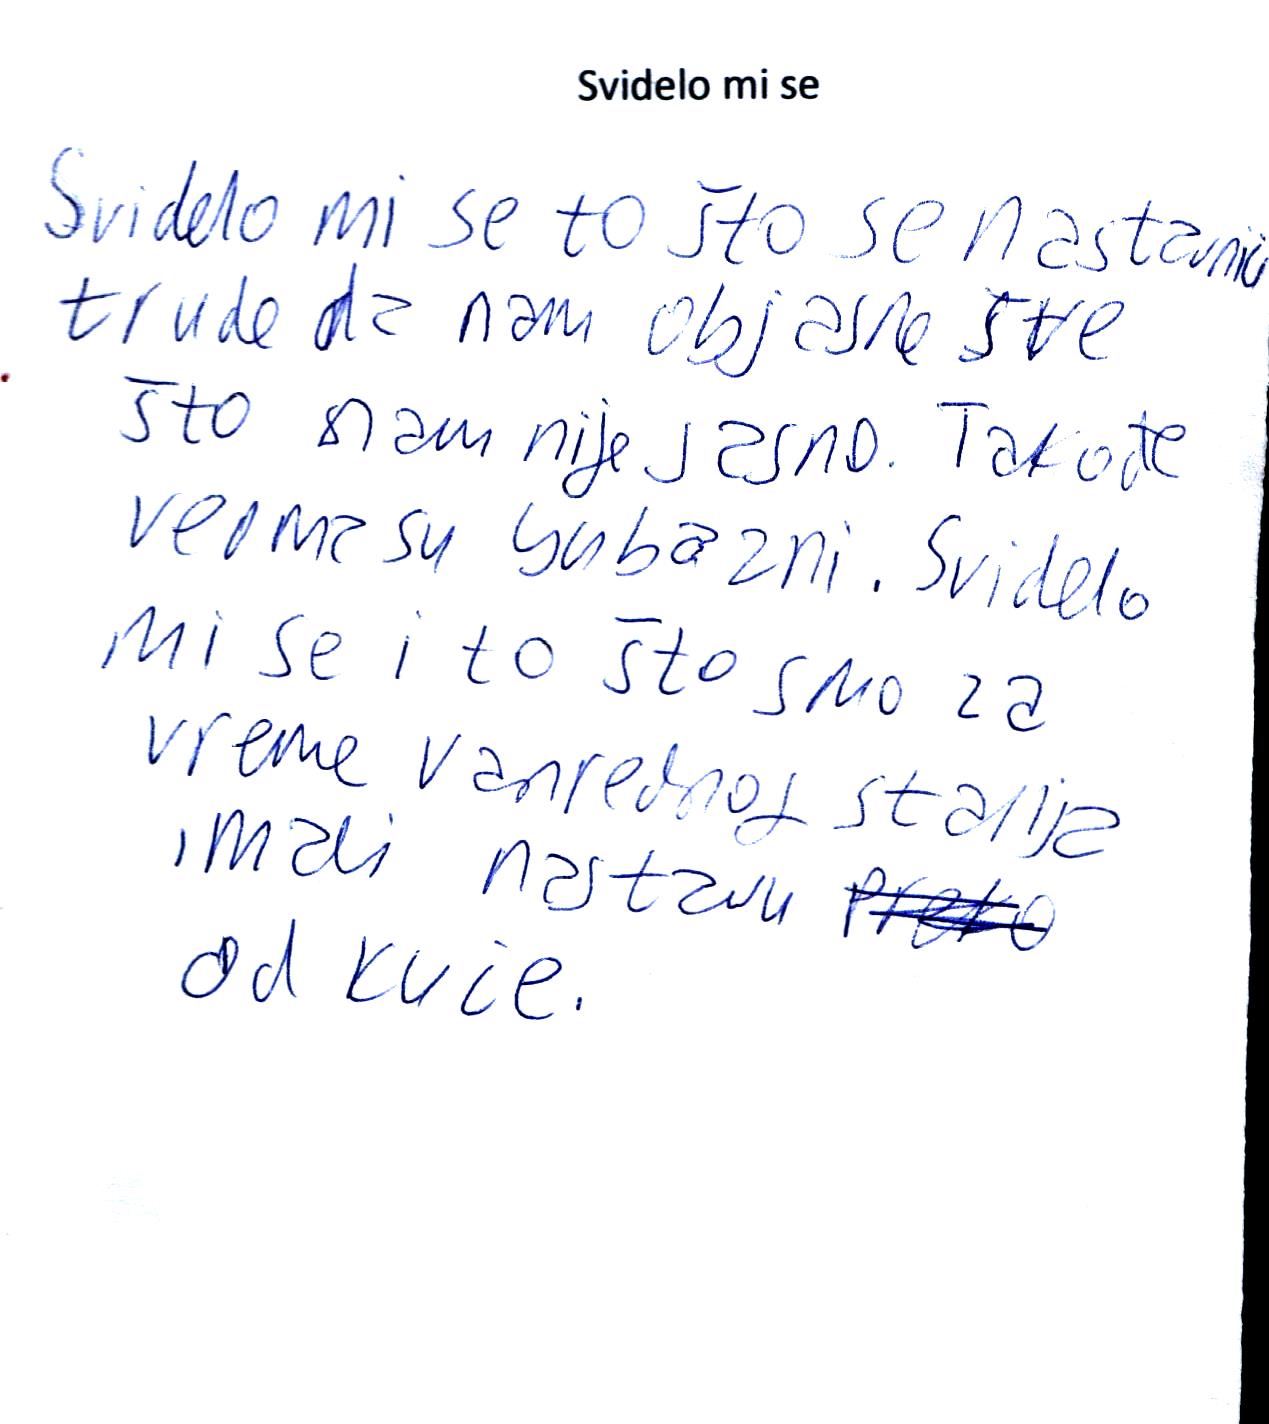 Svidelo mi se
Svidelo mi se to što se nastavnici
trude da nam objasne sve
što nam nije jasno. Takođe
veoma su ljubazni. Svidelo
mi se i to što smo za
vreme vanrednog stanija
imali nastavu preko
od kuće.